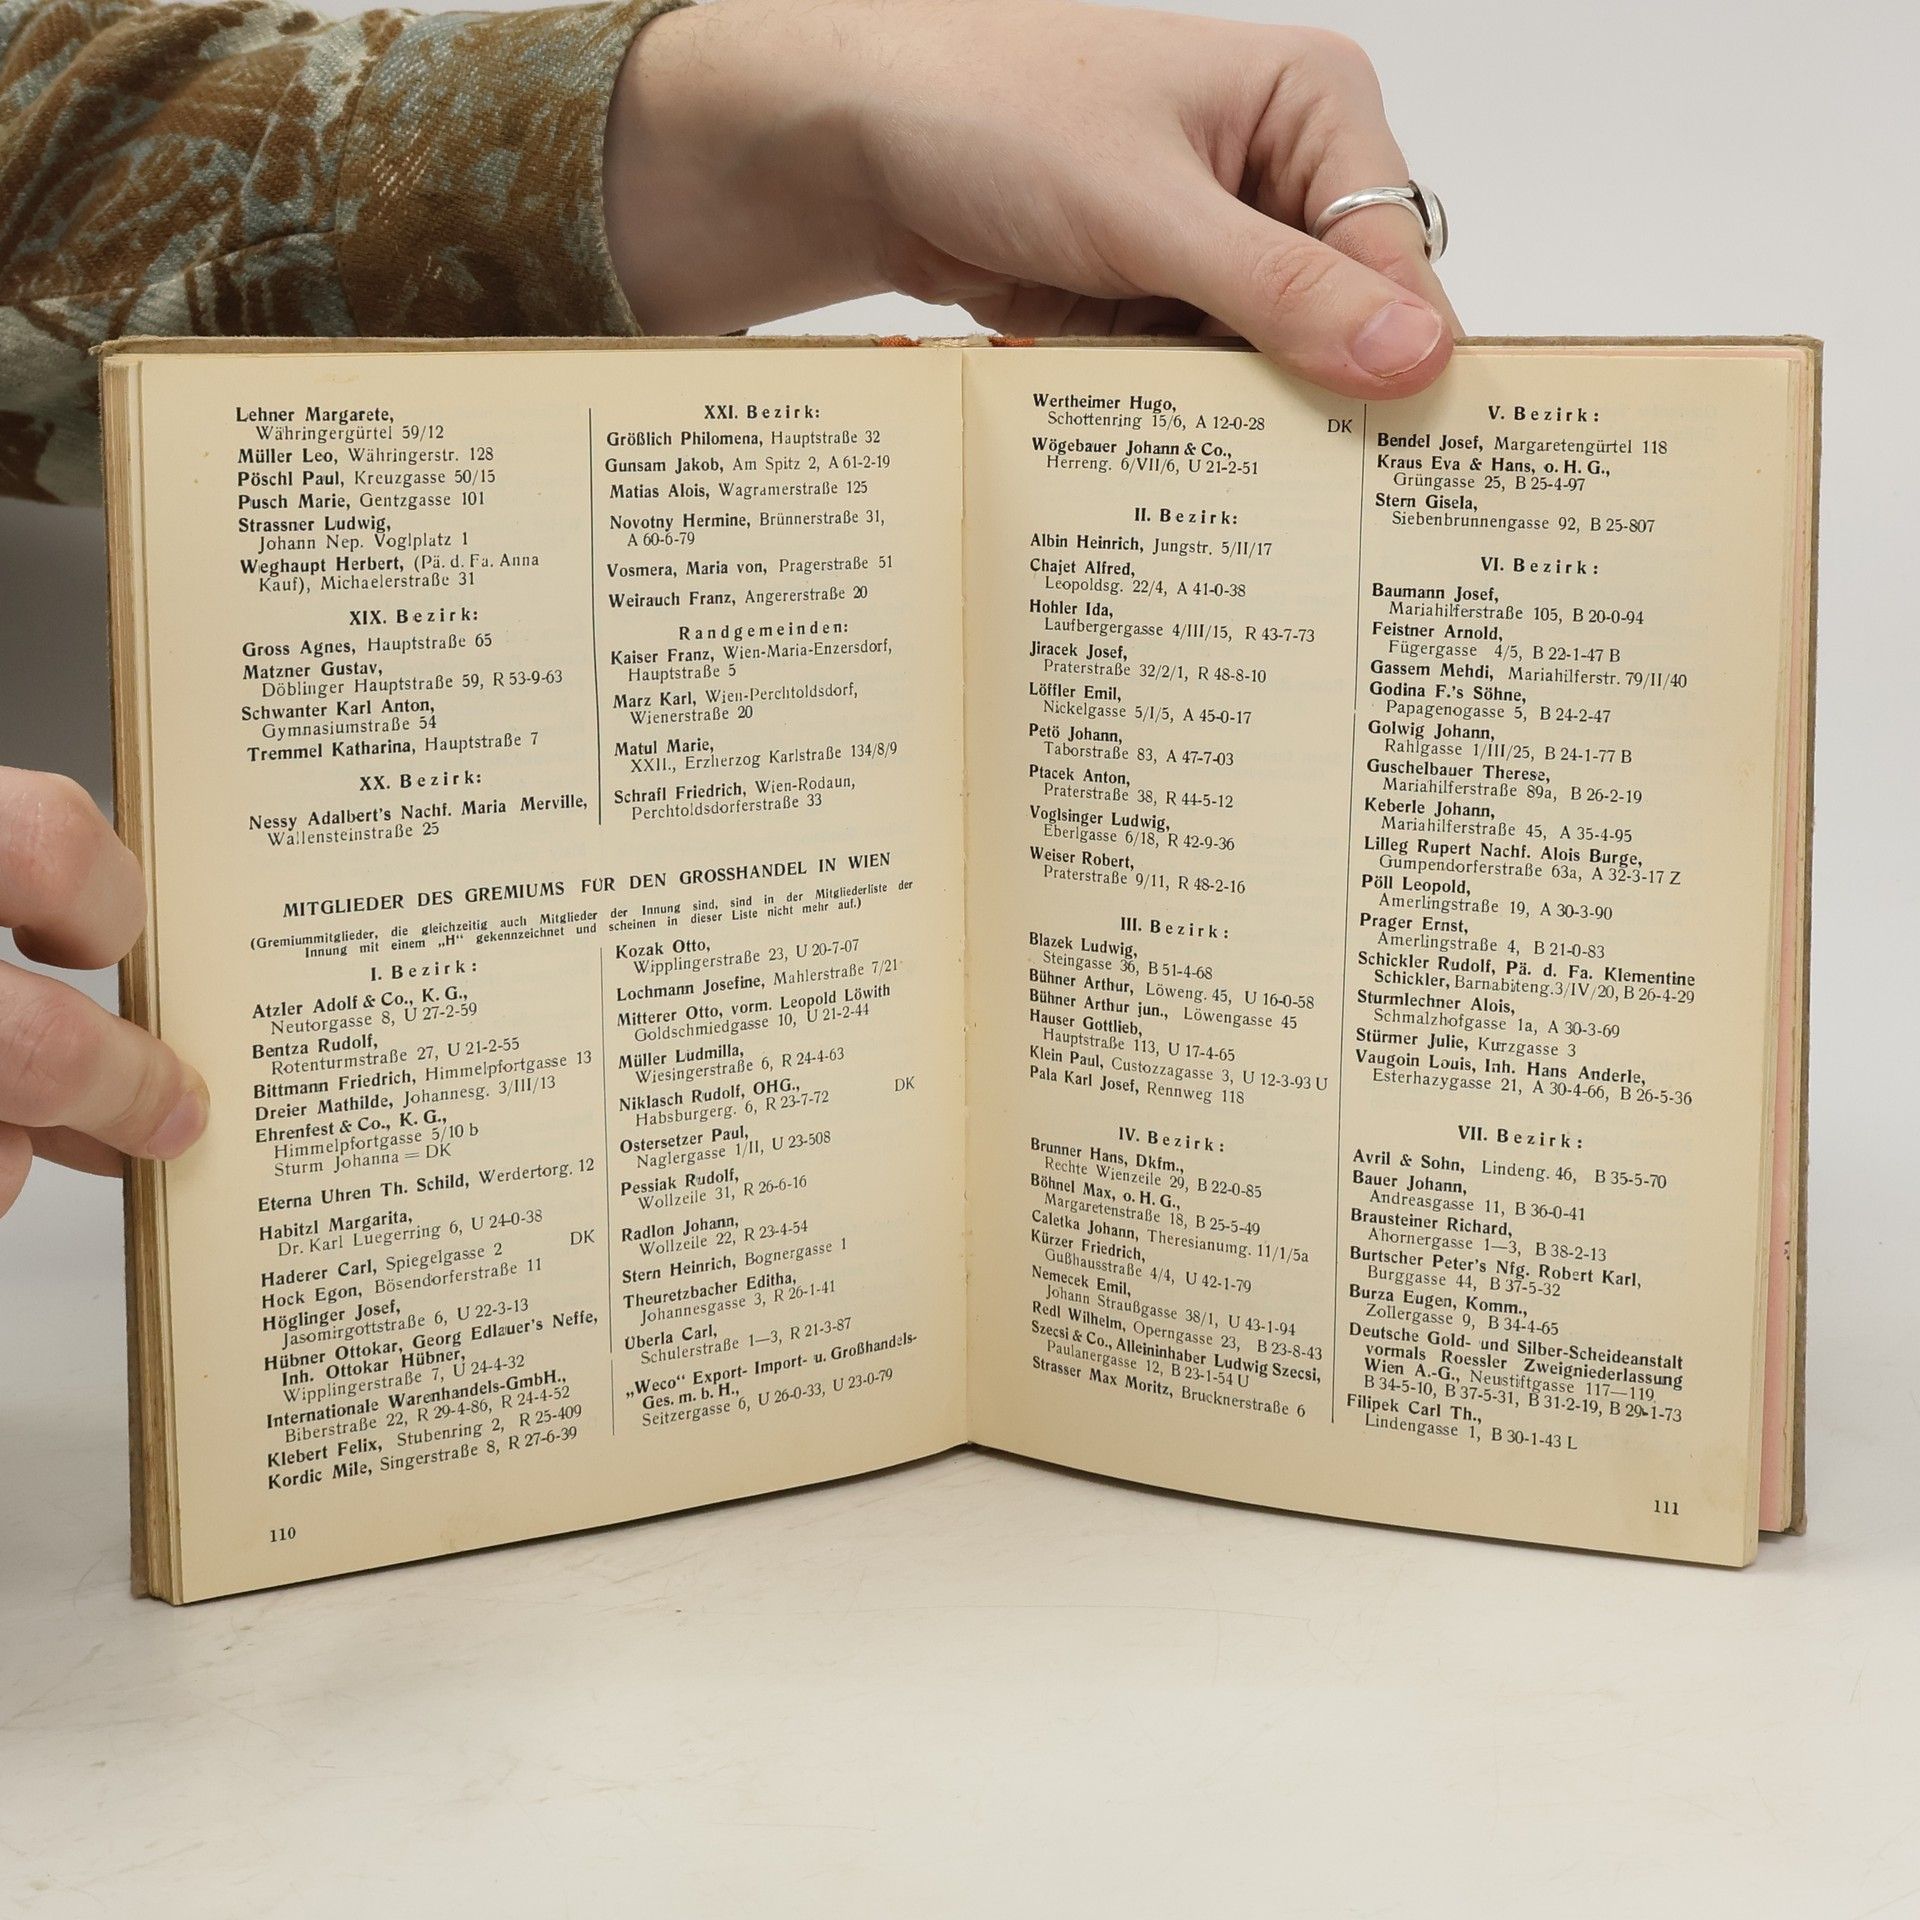 Lehner Margarete,
Währingergürtel 59/12
Müller Leo, Währingerstr. 128
Pöschl Paul, Kreuzgasse 50/15
Pusch Marie, Gentzgasse 101
Strassner Ludwig,
Johann Nep. Voglplatz 1
Weghaupt Herbert, (Pä. d. Fa. Anna
Kauf), Michaelerstraße 31
XIX. Bezirk:
Gross Agnes, Hauptstraße 65
Matzner Gustav,
Döblinger Hauptstraße 59, R 53-9-63
Schwanter Karl Anton,
Gymnasiumstraße 54
Tremmel Katharina, Hauptstraße 7
XX. Bezirk:
Nessy Adalbert's Nachf. Maria Merville,
Wallensteinstraße 25
XXI. Bezirk:
Größlich Philomena, Hauptstraße 32
Gunsam Jakob, Am Spitz 2, A 61-2-19
Matias Alois, Wagramerstraße 125
Novotny Hermine, Brünnerstraße 31,
A 60-6-79
Vosmera, Maria von, Pragerstraße 51
Weirauch Franz, Angererstraße 20
Randgemeinden:
Kaiser Franz, Wien-Maria-Enzersdorf,
Hauptstraße 5
Marz Karl, Wien-Perchtoldsdorf,
Wienerstraße 20
Matul Marie,
XXII., Erzherzog Karlstraße 134/8/9
Schrafl Friedrich, Wien-Rodaun,
Perchtoldsdorferstraße 33
MITGLIEDER DES GREMIUMS FÜR DEN GROSSHANDEL IN WIEN
(Gremiummitglieder, die gleichzeitig auch Mitglieder der Innung sind, sind in der Mitgliederliste der
Innung mit einem „H“ gekennzeichnet und scheinen in dieser Liste nicht mehr auf.)
I. Bezirk:
Atzler Adolf & Co., K. G.,
Neutorgasse 8, U 27-2-59
Bentza Rudolf,
Rotenturmstraße 27, U 21-2-55
Bittmann Friedrich, Himmelpfortgasse 13
Dreier Mathilde, Johannesg. 3/III/13
Ehrenfest & Co., K. G.,
Himmelpfortgasse 5/10 b
Sturm Johanna = DK
Eterna Uhren Th. Schild, Werdertorg. 12
Habitzl Margarita,
Dr. Karl Luegerring 6, U 24-0-38
Haderer Carl, Spiegelgasse 2 DK
Hock Egon, Bösendorferstraße 11
Höglinger Josef,
Jasomirgottstraße 6, U 22-3-13
Hübner Ottokar, Georg Edlauer's Neffe,
Inh. Ottokar Hübner,
Wipplingerstraße 7, U 24-4-32
Internationale Warenhandels-GmbH.,
Biberstraße 22, R 29-4-86, R 24-4-52
Klebert Felix, Stubenring 2, R 25-409
Kordic Mile, Singerstraße 8, R 27-6-39
Kozak Otto,
Wipplingerstraße 23, U 20-7-07
Lochmann Josefine, Mahlerstraße 7/21
Mitterer Otto, vorm. Leopold Löwith
Goldschmiedgasse 10, U 21-2-44
Müller Ludmilla,
Wiesingerstraße 6, R 24-4-63
Niklasch Rudolf, OHG., DK
Habsburgerg. 6, R 23-7-72
Ostersetzer Paul,
Naglergasse 1/II, U 23-508
Pessiak Rudolf,
Wollzeile 31, R 26-6-16
Radlon Johann,
Wollzeile 22, R 23-4-54
Stern Heinrich, Bognergasse 1
Theuretzbacher Editha,
Johannesgasse 3, R 26-1-41
Überla Carl,
Schulerstraße 1—3, R 21-3-87
„Weco“ Export- Import- u. Großhandels-
Ges. m. b. H.,
Seitzergasse 6, U 26-0-33, U 23-0-79
110
Wertheimer Hugo,
Schottenring 15/6, A 12-0-28 DK
Wögebauer Johann & Co.,
Herreng. 6/VII/6, U 21-2-51
II. Bezirk:
Albin Heinrich, Jungstr. 5/II/17
Chajet Alfred,
Leopoldsg. 22/4, A 41-0-38
Hohler Ida,
Laufbergergasse 4/III/15, R 43-7-73
Jiracek Josef,
Praterstraße 32/2/1, R 48-8-10
Löffler Emil,
Nickelgasse 5/I/5, A 45-0-17
Petö Johann,
Taborstraße 83, A 47-7-03
Ptacek Anton,
Praterstraße 38, R 44-5-12
Voglsinger Ludwig,
Eberlgasse 6/18, R 42-9-36
Weiser Robert,
Praterstraße 9/11, R 48-2-16
III. Bezirk:
Blazek Ludwig,
Steingasse 36, B 51-4-68
Bühner Arthur, Löweng. 45, U 16-0-58
Bühner Arthur jun., Löwengasse 45
Hauser Gottlieb,
Hauptstraße 113, U 17-4-65
Klein Paul, Custozzagasse 3, U 12-3-93 U
Pala Karl Josef, Rennweg 118
IV. Bezirk:
Brunner Hans, Dkfm.,
Rechte Wienzeile 29, B 22-0-85
Böhnel Max, o. H. G.,
Margaretenstraße 18, B 25-5-49
Caletka Johann, Theresianumg. 11/1/5a
Kürzer Friedrich,
Gußhausstraße 4/4, U 42-1-79
Nemecek Emil,
Johann Straußgasse 38/1, U 43-1-94
Redl Wilhelm, Operngasse 23, B 23-8-43
Szecsi & Co., Alleininhaber Ludwig Szecsi,
Paulanergasse 12, B 23-1-54 U
Strasser Max Moritz, Brucknerstraße 6
V. Bezirk:
Bendel Josef, Margaretengürtel 118
Kraus Eva & Hans, o. H. G.,
Grüngasse 25, B 25-4-97
Stern Gisela,
Siebenbrunnengasse 92, B 25-807
VI. Bezirk:
Baumann Josef,
Mariahilferstraße 105, B 20-0-94
Feistner Arnold,
Fügergasse 4/5, B 22-1-47 B
Gassem Mehdi, Mariahilferstr. 79/II/40
Godina F.'s Söhne,
Papagenogasse 5, B 24-2-47
Golwig Johann,
Rahlgasse 1/III/25, B 24-1-77 B
Guschelbauer Therese,
Mariahilferstraße 89a, B 26-2-19
Keberle Johann,
Mariahilferstraße 45, A 35-4-95
Lilleg Rupert Nachf. Alois Burge,
Gumpendorferstraße 63a, A 32-3-17 Z
Pöll Leopold,
Amerlingstraße 19, A 30-3-90
Prager Ernst,
Amerlingstraße 4, B 21-0-83
Schickler Rudolf, Pä. d. Fa. Klementine
Schickler, Barnabiteng. 3/IV/20, B 26-4-29
Sturmlechner Alois,
Schmalzhofgasse 1a, A 30-3-69
Stürmer Julie, Kurzgasse 3
Vaugoin Louis, Inh. Hans Anderle,
Esterhazygasse 21, A 30-4-66, B 26-5-36
VII. Bezirk:
Avril & Sohn, Lindeng. 46, B 35-5-70
Bauer Johann,
Andreasgasse 11, B 36-0-41
Brausteiner Richard,
Ahornergasse 1—3, B 38-2-13
Burtscher Peter's Nfg. Robert Karl,
Burggasse 44, B 37-5-32
Burza Eugen, Komm.,
Zollergasse 9, B 34-4-65
Deutsche Gold- und Silber-Scheideanstalt
vormals Roessler Zweigniederlassung
Wien A.-G., Neustiftgasse 117—119,
B 34-5-10, B 37-5-31, B 31-2-19, B 29-1-73
Filipek Carl Th.,
Lindengasse 1, B 30-1-43 L
111